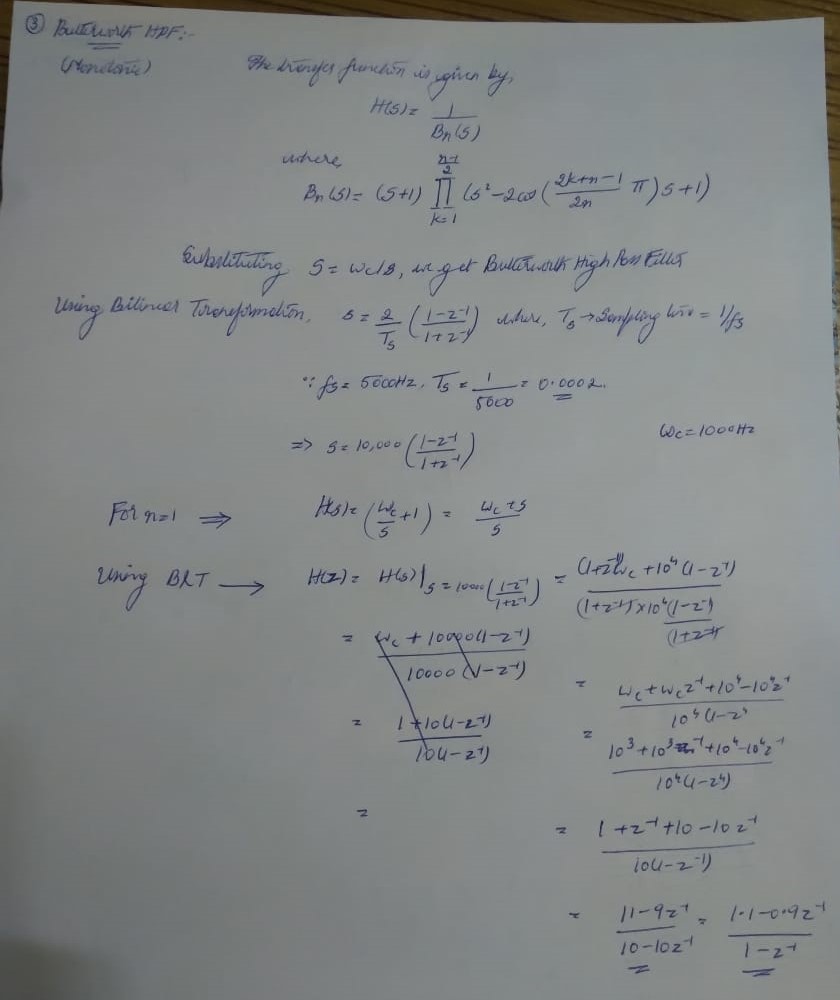 ③ Butterworth HPF:-
(Monotonic) The transfer function is given by,
H(s) = 1 / Bn(s)
where,
Bn(s) = (s+1) ∏_{k=1}^{(n-1)/2} (s² - 2cos((2k+n-1)/2n π) s + 1)
Substituting S = ωc/s, we get Butterworth High Pass Filter
Using Bilinear Transformation, s = 2/Ts ((1-z⁻¹)/(1+z⁻¹)) where, Ts → Sampling time = 1/fs
∵ fs = 5000Hz, Ts = 1/5000 = 0.0002.
⇒ s = 10,000 ((1-z⁻¹)/(1+z⁻¹)) ωc = 1000Hz
For n=1 ⇒ H(s) = (ωc/s + 1) = (ωc+s)/s
Using BLT → H(z) = H(s)|s = 10000((1-z⁻¹)/(1+z⁻¹)) = ((1+z⁻¹)ωc + 10⁴(1-z⁻¹)) / ((1+z⁻¹) × 10⁴ (1-z⁻¹)/(1+z⁻¹))
= (ωc + 10000(1-z⁻¹)) / (10000(1-z⁻¹))
= (ωc + ωc z⁻¹ + 10⁴ - 10⁴z⁻¹) / (10⁴(1-z⁻¹))
= (1+10(1-z⁻¹)) / (10(1-z⁻¹))
= (10³ + 10³ z⁻¹ + 10⁴ - 10⁴z⁻¹) / (10⁴(1-z⁻¹))
=
= (1 + z⁻¹ + 10 - 10z⁻¹) / (10(1-z⁻¹))
= (11-9z⁻¹) / (10-10z⁻¹) = (1.1-0.9z⁻¹) / (1-z⁻¹)